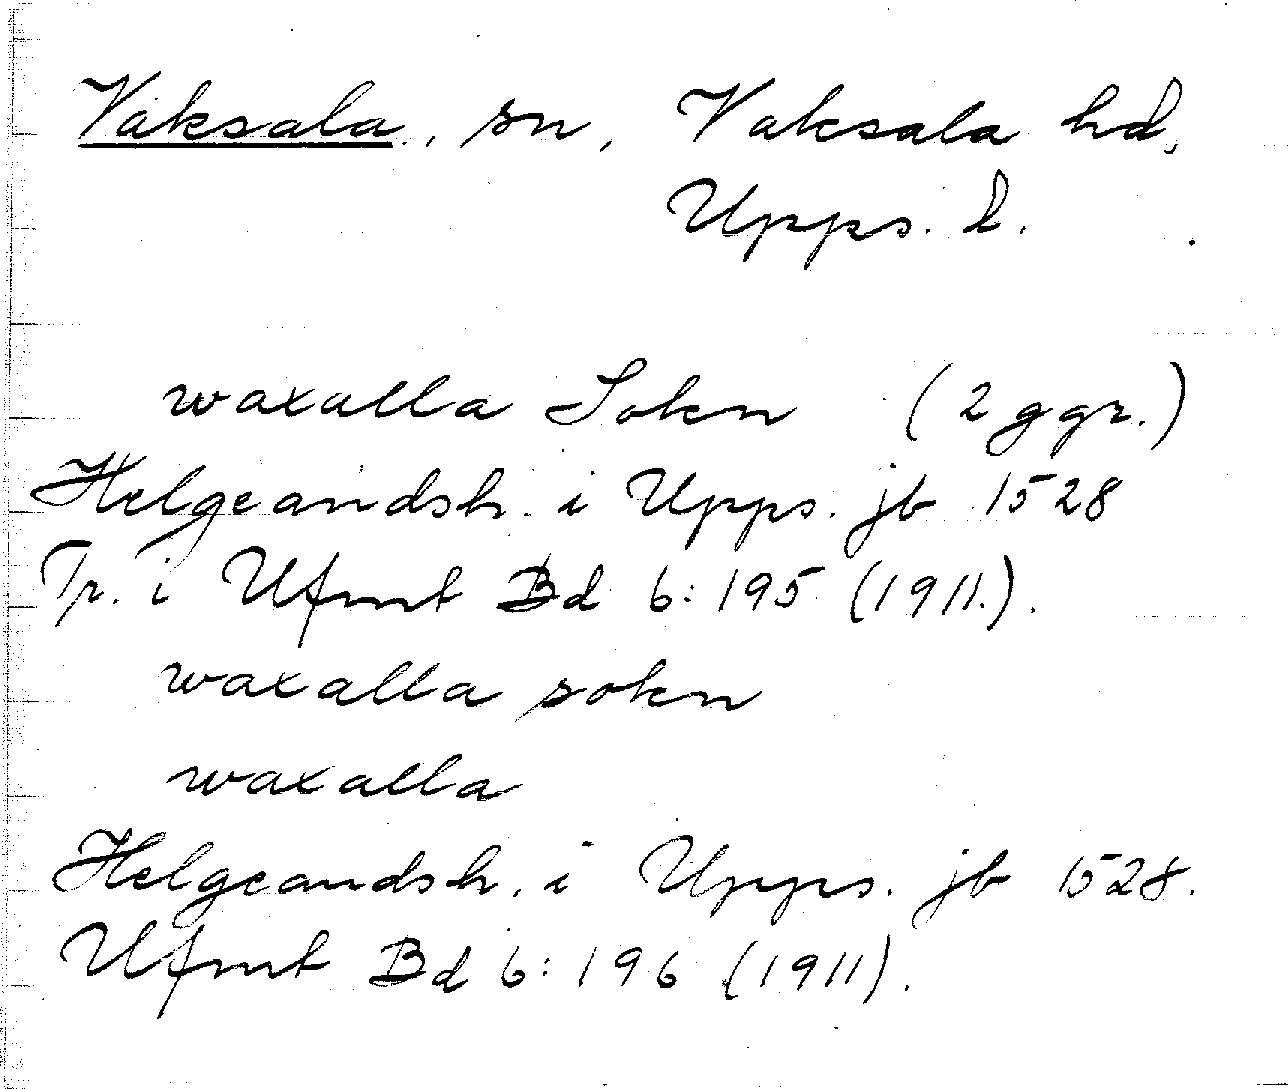 Vaksala, sn, Vaksala hd,
Upps. l.
waxalla Sokn (2 ggr.)
Helgeandsh. i Upps. jb 1528
Tr. i Ufmt Bd 6:195 (1911.).
waxalla sokn
waxalla
Helgeandsh. i Upps. jb 1528.
Ufmt Bd 6:196 (1911).